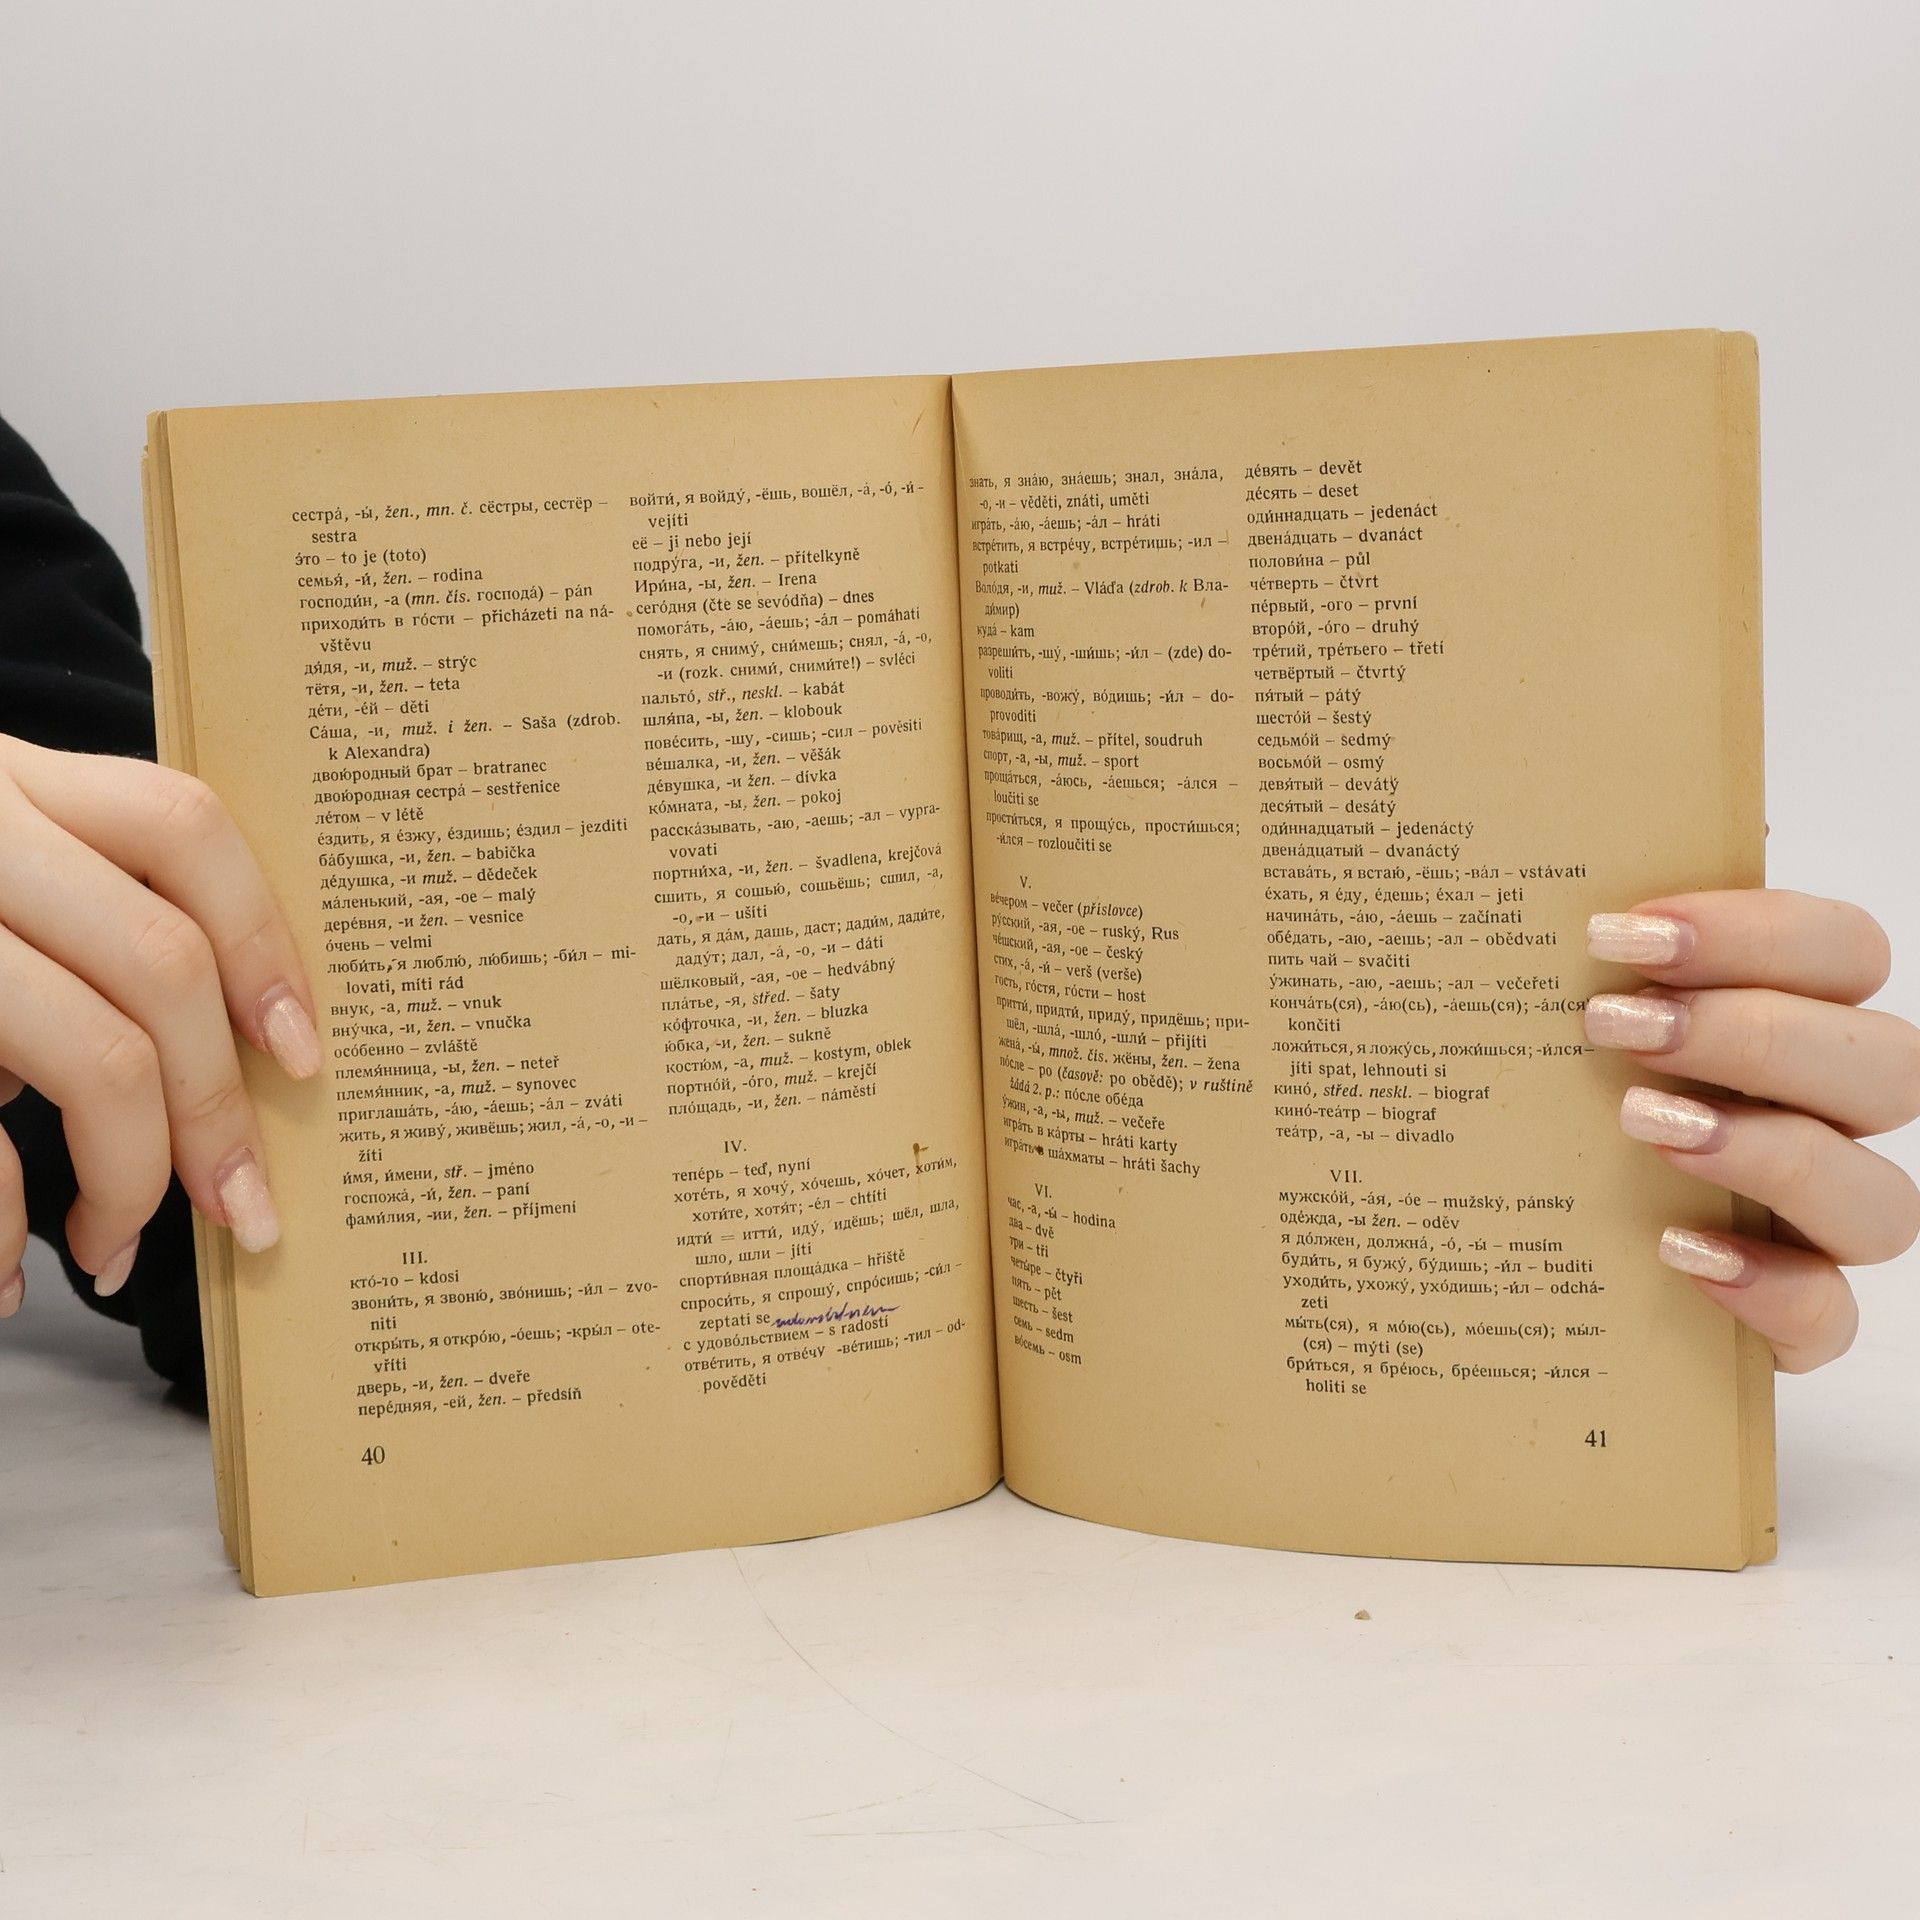 сестра́, -ы́, žen., mn. č. сёстры, сестёр –
sestra
э́то – to je (toto)
семья́, -и́, žen. – rodina
господи́н, -а (mn. čís. господа́) – pán
приходи́ть в го́сти – přicházeti na ná-
vštěvu
дя́дя, -и, muž. – strýc
тётя, -и, žen. – teta
де́ти, -е́й – děti
Са́ша, -и, muž. i žen. – Saša (zdrob.
k Alexandra)
двою́родный брат – bratranec
двою́родная сестра́ – sestřenice
ле́том – v létě
е́здить, я е́зжу, е́здишь; е́здил – jezditi
ба́бушка, -и, žen. – babička
де́душка, -и muž. – dědeček
ма́ленький, -ая, -ое – malý
дере́вня, -и žen. – vesnice
о́чень – velmi
люби́ть, я люблю́, лю́бишь; -би́л – mi-
lovati, míti rád
внук, -а, muž. – vnuk
вну́чка, -и, žen. – vnučka
осо́бенно – zvláště
племя́нница, -ы, žen. – neteř
племя́нник, -а, muž. – synovec
приглаша́ть, -а́ю, -а́ешь; -а́л – zváti
жить, я живу́, живёшь; жил, -а́, -о, -и –
žíti
и́мя, и́мени, stř. – jméno
госпожа́, -и́, žen. – paní
фами́лия, -ии, žen. – příjmení
III.
кто́-то – kdosi
звони́ть, я звоню́, зво́нишь; -и́л – zvo-
niti
откры́ть, я откро́ю, -о́ешь; -кры́л – ote-
vříti
дверь, -и, žen. – dveře
пере́дняя, -ей, žen. – předsíň
40
войти́, я войду́, -ёшь, вошёл, -а́, -о́, -и́ –
vejíti
её – ji nebo její
подру́га, -и, žen. – přítelkyně
Ири́на, -ы, žen. – Irena
сего́дня (čte se sevódňa) – dnes
помога́ть, -а́ю, -а́ешь; -а́л – pomáhati
снять, я сниму́, сни́мешь; снял, -а́, -о,
-и (rozk. сними́, сними́те!) – svléci
пальто́, stř., neskl. – kabát
шля́па, -ы, žen. – klobouk
пове́сить, -шу, -сишь; -сил – pověsiti
ве́шалка, -и, žen. – věšák
де́вушка, -и žen. – dívka
ко́мната, -ы, žen. – pokoj
расска́зывать, -аю, -аешь; -ал – vypra-
vovati
портни́ха, -и, žen. – švadlena, krejčová
сшить, я сошью́, сошьёшь; сшил, -а,
-о, -и – ušíti
дать, я да́м, дашь, даст; дади́м, дади́те,
даду́т; дал, -а́, -о, -и – dáti
шёлковый, -ая, -ое – hedvábný
пла́тье, -я, střed. – šaty
ко́фточка, -и, žen. – bluzka
ю́бка, -и, žen. – sukně
костю́м, -а, muž. – kostym, oblek
портно́й, -о́го, muž. – krejčí
пло́щадь, -и, žen. – náměstí
IV.
тепе́рь – teď, nyní
хоте́ть, я хочу́, хо́чешь, хо́чет, хоти́м,
хоти́те, хотя́т; -е́л – chtíti
идти́ = итти́, иду́, идёшь; шёл, шла,
шло, шли – jíti
спорти́вная площа́дка – hřiště
спроси́ть, я спрошу́, спро́сишь; -си́л –
zeptati se
с удово́льствием – s radostí
отве́тить, я отве́чу -ве́тишь; -тил – od-
pověděti
знать, я зна́ю, зна́ешь; знал, зна́ла,
-о, -и – věděti, znáti, uměti
игра́ть, -а́ю, -а́ешь; -а́л – hráti
встре́тить, я встре́чу, встре́тишь; -ил –
potkati
Воло́дя, -и, muž. – Vláďa (zdrob. k Вла-
ди́мир)
куда́ – kam
разреши́ть, -шу́, -ши́шь; -и́л – (zde) do-
voliti
проводи́ть, -вожу́, во́дишь; -и́л – do-
provoditi
това́рищ, -а, muž. – přítel, soudruh
спорт, -а, -ы, muž. – sport
проща́ться, -а́юсь, -а́ешься; -а́лся –
loučiti se
прости́ться, я прощу́сь, прости́шься;
-и́лся – rozloučiti se
V.
ве́чером – večer (příslovce)
ру́сский, -ая, -ое – ruský, Rus
че́шский, -ая, -ое – český
стих, -а́, -и́ – verš (verše)
гость, го́стя, го́сти – host
притти́, придти́, приду́, придёшь; при-
шёл, -шла́, -шло́, -шли́ – přijíti
жена́, -ы́, množ. čís. жёны, žen. – žena
по́сле – po (časově: po obědě); v ruštině
žádá 2. p.: по́сле обе́да
у́жин, -а, -ы, muž. – večeře
игра́ть в ка́рты – hráti karty
игра́ть в ша́хматы – hráti šachy
VI.
час, -а, -ы́ – hodina
два – dvě
три – tři
четы́ре – čtyři
пять – pět
шесть – šest
семь – sedm
во́семь – osm
де́вять – devět
де́сять – deset
оди́ннадцать – jedenáct
двена́дцать – dvanáct
полови́на – půl
че́тверть – čtvrt
пе́рвый, -ого – první
второ́й, -о́го – druhý
тре́тий, тре́тьего – třetí
четвёртый – čtvrtý
пя́тый – pátý
шесто́й – šestý
седьмо́й – sedmý
восьмо́й – osmý
девя́тый – devátý
деся́тый – desátý
оди́ннадцатый – jedenáctý
двена́дцатый – dvanáctý
встава́ть, я встаю́, -ёшь; -ва́л – vstávati
е́хать, я е́ду, е́дешь; е́хал – jeti
начина́ть, -а́ю, -а́ешь – začínati
обе́дать, -аю, -аешь; -ал – obědvati
пить чай – svačiti
у́жинать, -аю, -аешь; -ал – večeřeti
конча́ть(ся), -а́ю(сь), -а́ешь(ся); -а́л(ся
končiti
ложи́ться, я ложу́сь, ложи́шься; -и́лся –
jíti spat, lehnouti si
кино́, střed. neskl. – biograf
кино́-теа́тр – biograf
теа́тр, -а, -ы – divadlo
VII.
мужско́й, -а́я, -о́е – mužský, pánský
оде́жда, -ы žen. – oděv
я до́лжен, должна́, -о́, -ы́ – musím
буди́ть, я бужу́, бу́дишь; -и́л – buditi
уходи́ть, ухожу́, ухо́дишь; -и́л – odchá-
zeti
мы́ть(ся), я мо́ю(сь), мо́ешь(ся); мы́л-
(ся) – mýti (se)
бри́ться, я бре́юсь, бре́ешься; -и́лся –
holiti se
41